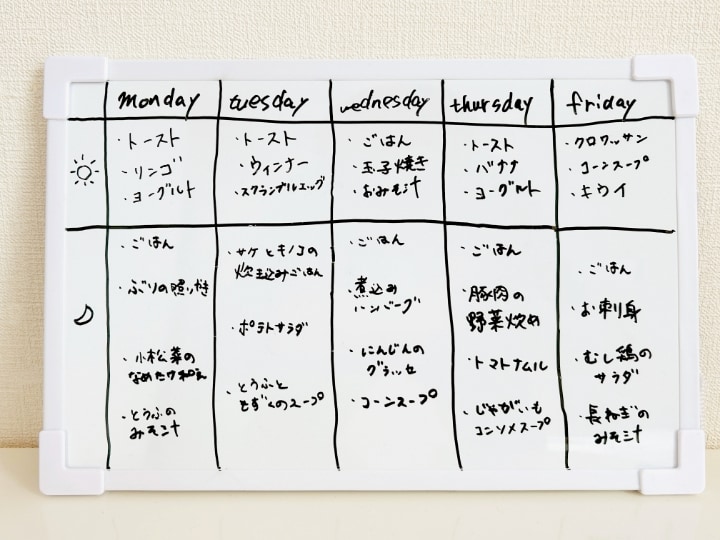 monday
tuesday
wednesday
thursday
friday
・トースト
・リンゴ
・ヨーグルト
・トースト
・ウィンナー
・スクランブルエッグ
・ごはん
・玉子焼き
・おみそ汁
・トースト
・バナナ
・ヨーグルト
・クロワッサン
・コーンスープ
・キウイ
・ごはん
・ぶりの照り焼き
・小松菜の
なめたけ和え
・とうふの
みそ汁
・サケとキノコの
炊き込みごはん
・ポテトサラダ
・とうふと
もずくのスープ
・ごはん
・煮込み
ハンバーグ
・にんじんの
グラッセ
・コーンスープ
・ごはん
・豚肉の
野菜炒め
・トマトナムル
・じゃがいも
コンソメスープ
・ごはん
・お刺身
・むし鶏の
サラダ
・長ねぎの
みそ汁